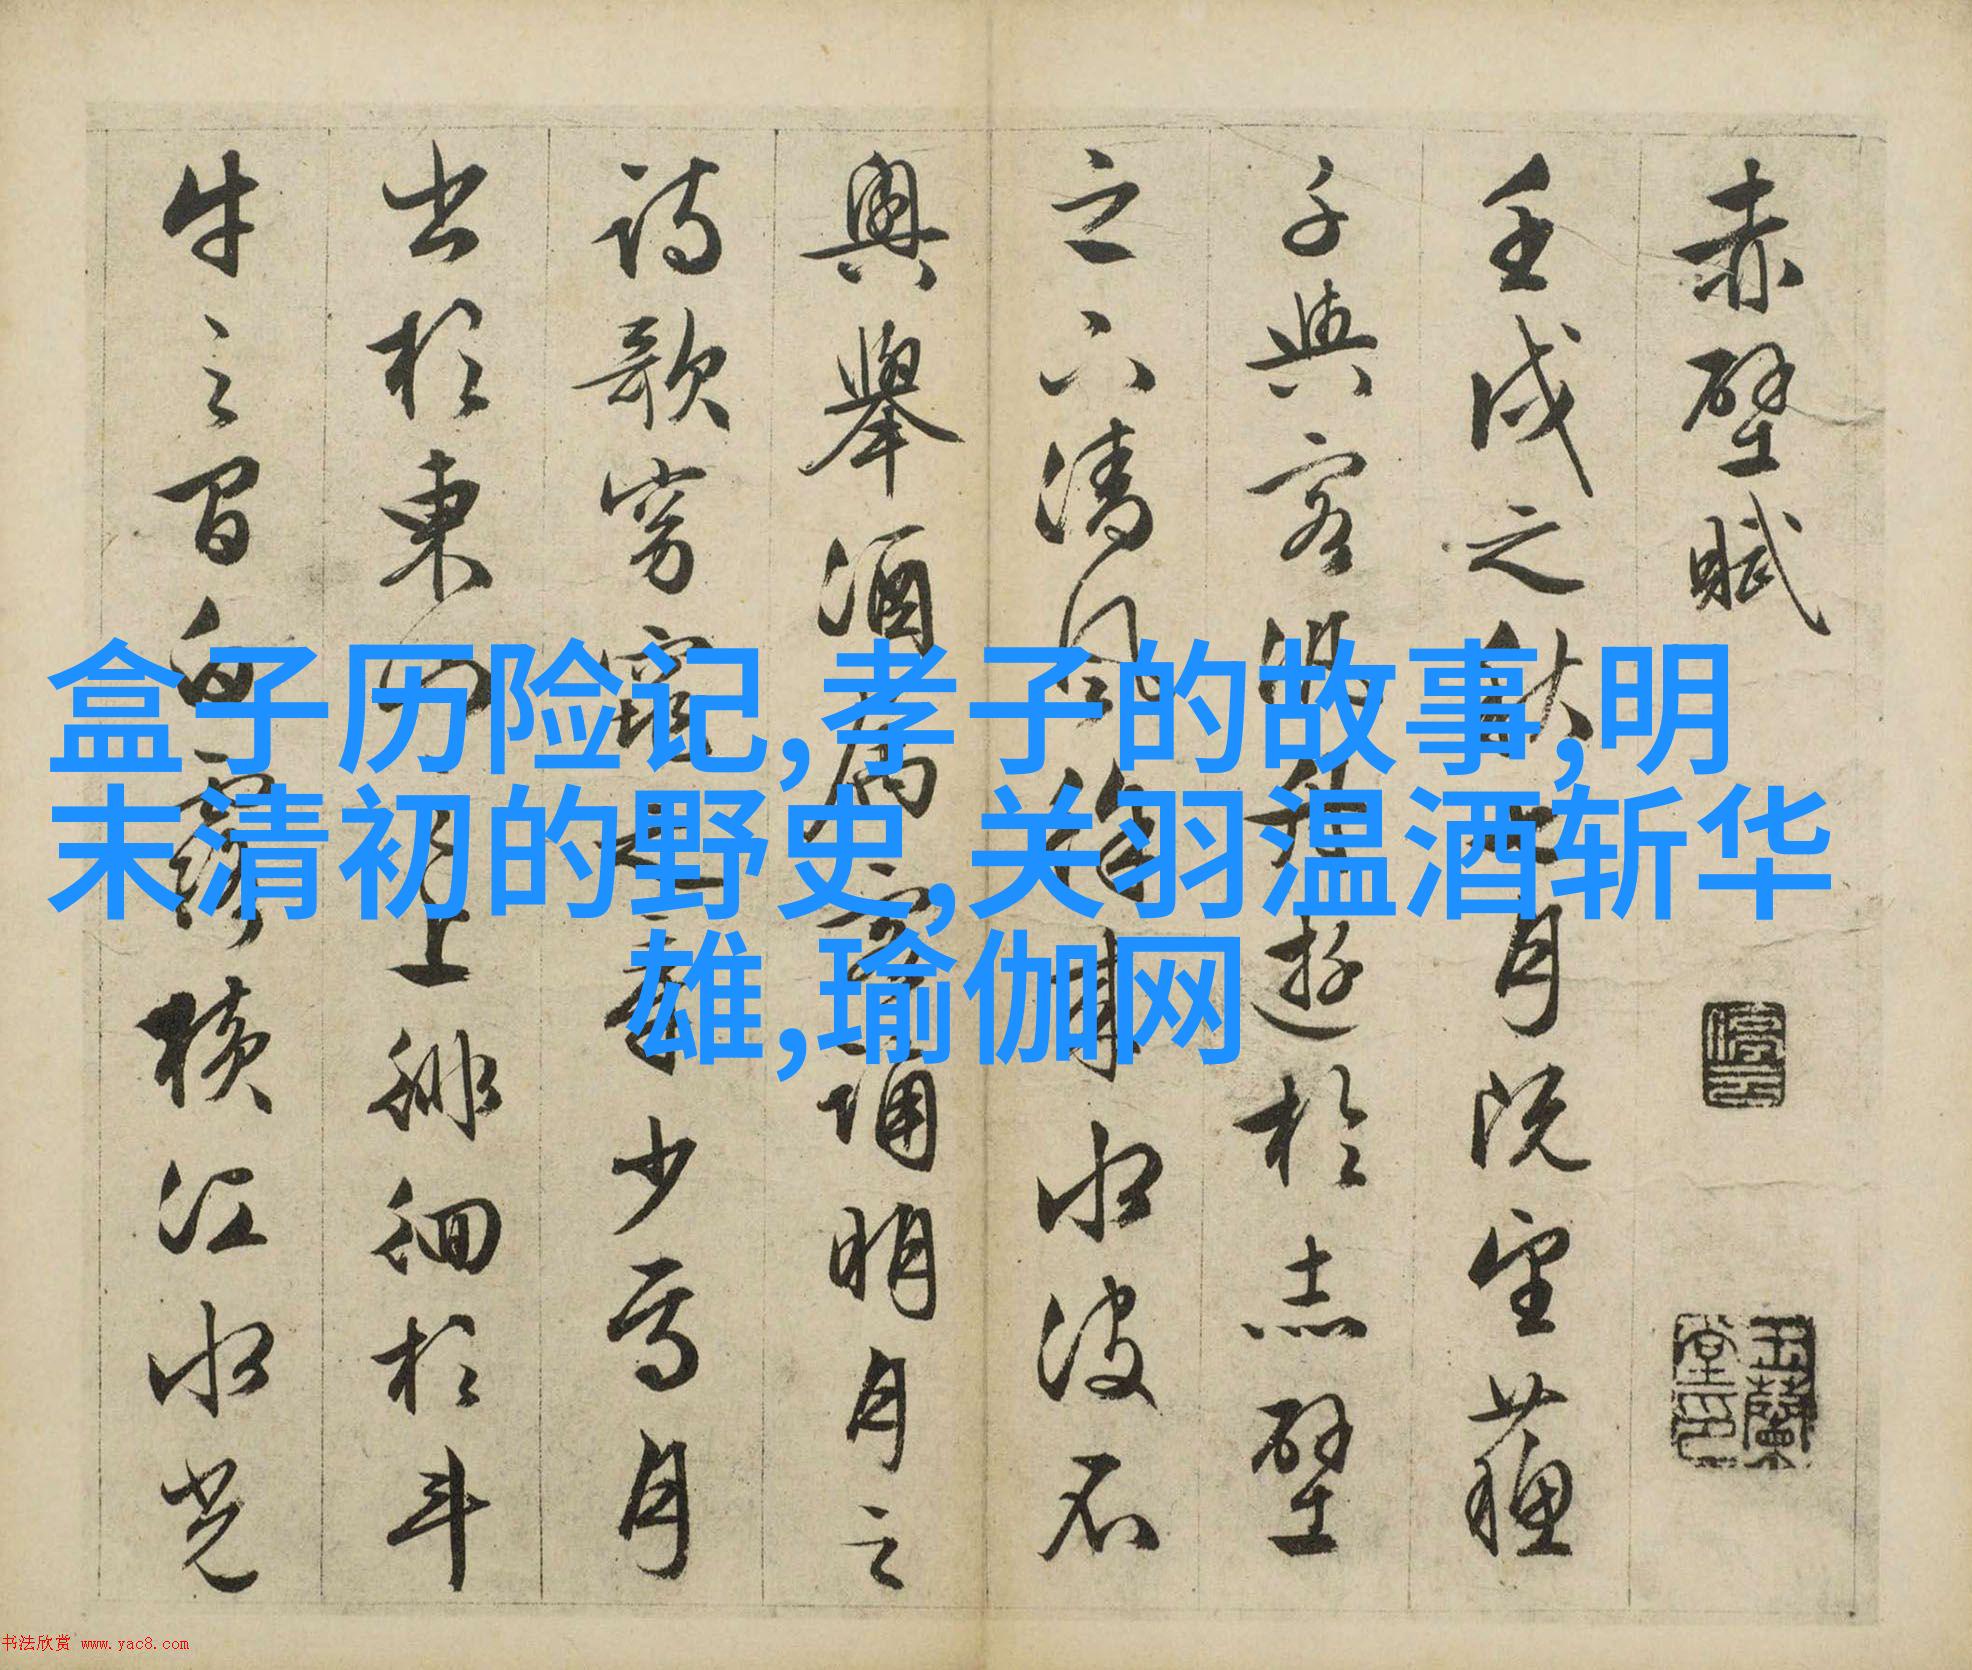 赤壁賦
壬戌之秋七月既望蘓
子與客泛舟遊於赤壁
之下清風徐來水波不
興舉酒属客誦明月之
詩歌窈窕之章少焉月
出於東山之上徘徊於斗
牛之間白露橫江水光
停雲
玉蘭堂印
盒子历险记,孝子的故事,明
末清初的野史,关羽温酒斩华
雄,瑜伽网
书法欣赏 www.yac8.com